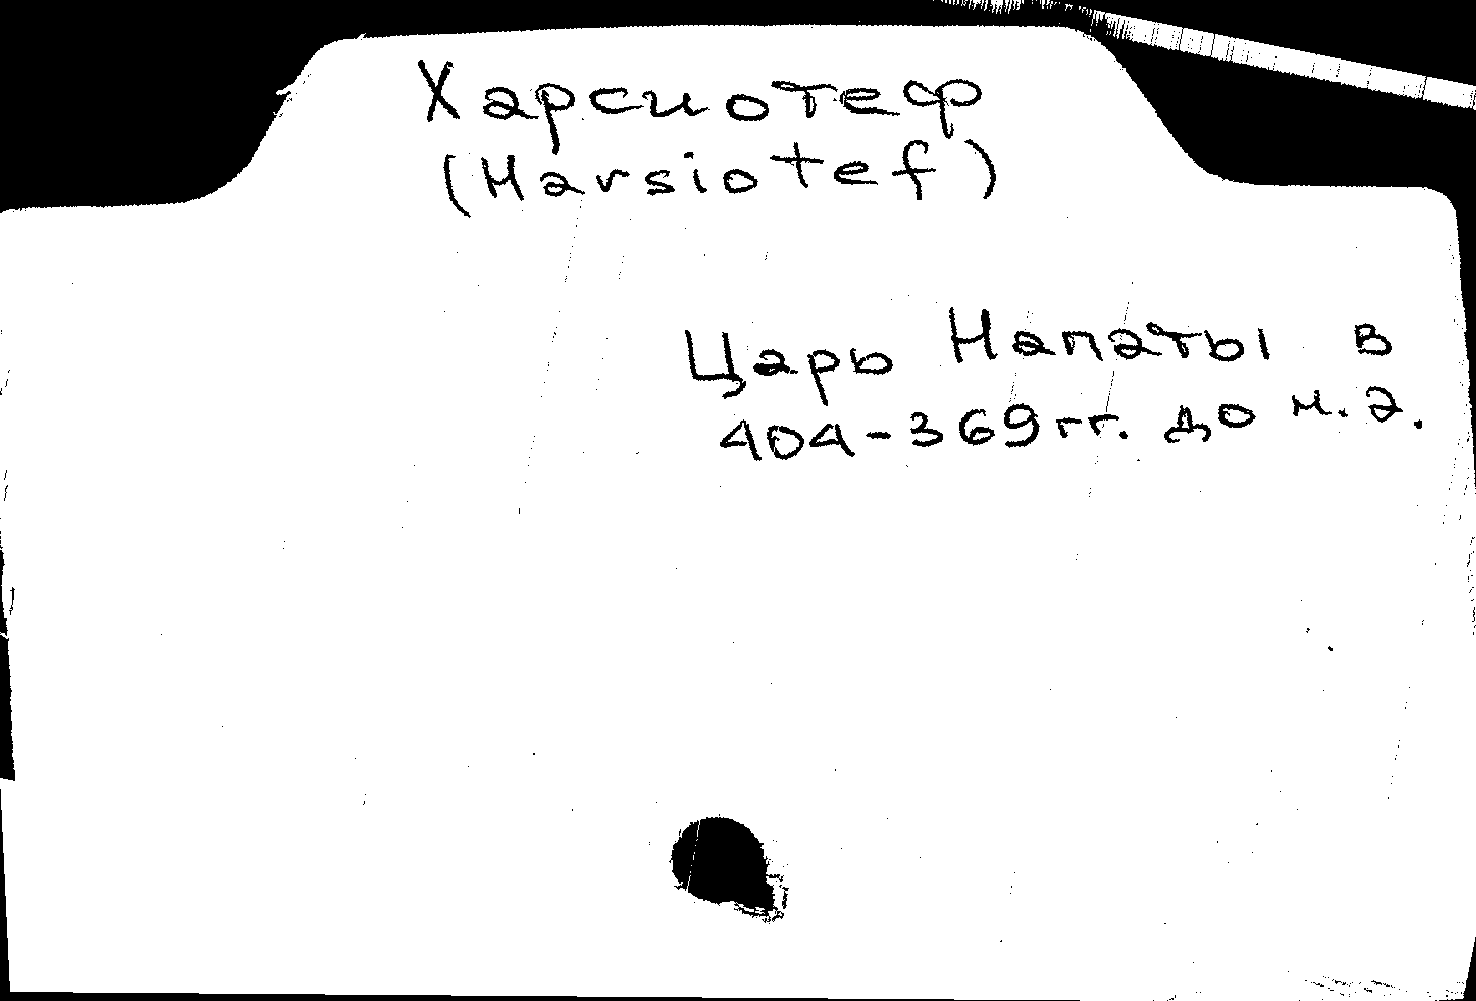 Харсиотеф
(Harsiotef)
Царь Напаты в
404-369 гг. до н.э.